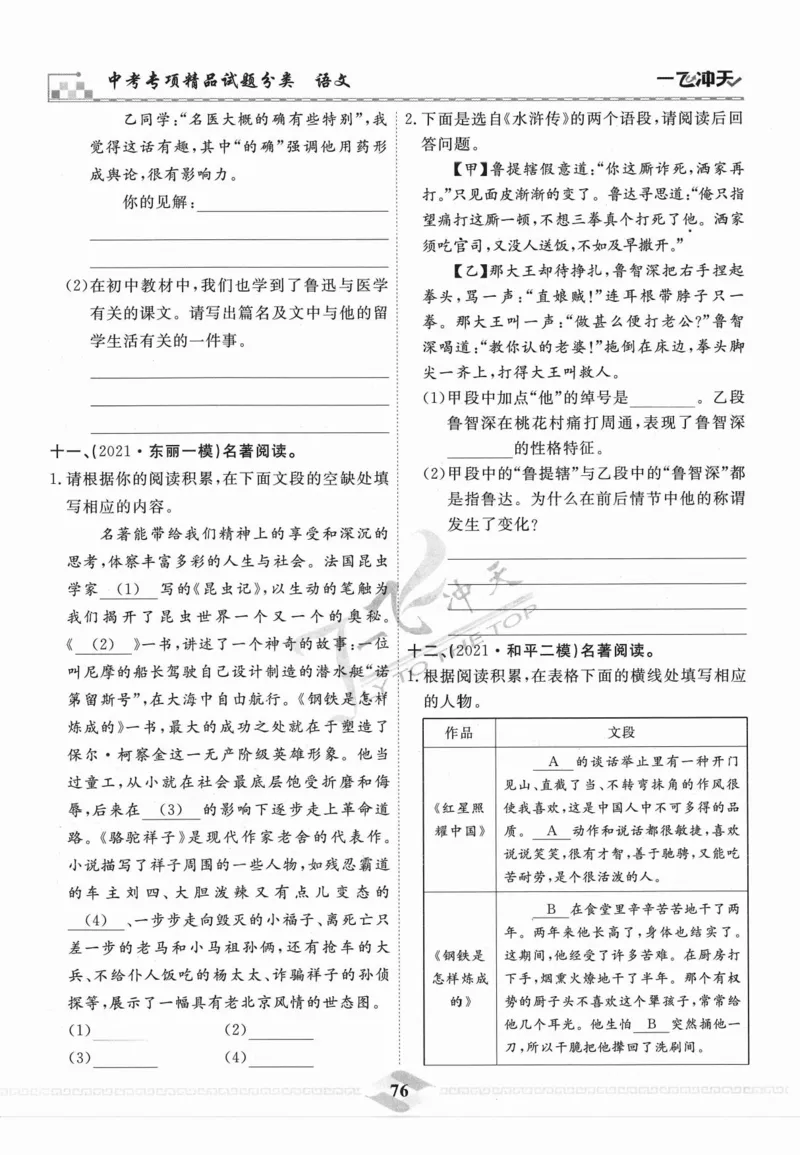 中考专项精品试题分类 语文
一飞冲天
乙同学：“名医大概的确有些特别”，我
觉得这话有趣，其中“的确”强调他用药形
成舆论，很有影响力。
你的见解：
(2)在初中教材中，我们也学到了鲁迅与医学
有关的课文。请写出篇名及文中与他的留
学生活有关的一件事。
十一、(2021·东丽一模)名著阅读。
1.请根据你的阅读积累，在下面文段的空缺处填
写相应的内容。
名著能带给我们精神上的享受和深沉的
思考，体察丰富多彩的人生与社会。法国昆虫
学家 (1) 写的《昆虫记》，以生动的笔触为
我们揭开了昆虫世界一个又一个的奥秘。
《 (2) 》一书，讲述了一个神奇的故事：一位
叫尼摩的船长驾驶自己设计制造的潜水艇“诺
第留斯号”，在大海中自由航行。《钢铁是怎样
炼成的》一书，最大的成功之处就在于塑造了
保尔·柯察金这一无产阶级英雄形象。他当
过童工，从小就在社会最底层饱受折磨和侮
辱，后来在 (3) 的影响下逐步走上革命道
路。《骆驼祥子》是现代作家老舍的代表作。
小说描写了祥子周围的一些人物，如残忍霸道
的车主刘四、大胆泼辣又有点儿变态的
(4) 、一步步走向毁灭的小福子、离死亡只
差一步的老马和小马祖孙俩，还有抢车的大
兵、不给仆人饭吃的杨太太、诈骗祥子的孙侦
探等，展示了一幅具有老北京风情的世态图。
(1) (2)
(3) (4)
2.下面是选自《水浒传》的两个语段，请阅读后回
答问题。
【甲】鲁提辖假意道：“你这厮诈死，洒家再
打。”只见面皮渐渐的变了。鲁达寻思道：“俺只指
望痛打这厮一顿，不想三拳真个打死了他。洒家
须吃官司，又没人送饭，不如及早撒开。”
【乙】那大王却待挣扎，鲁智深把右手捏起
拳头，骂一声：“直娘贼！”连耳根带脖子只一
拳。那大王叫一声：“做甚么便打老公？”鲁智
深喝道：“教你认的老婆！”拖倒在床边，拳头脚
尖一齐上，打得大王叫救人。
(1)甲段中加点“他”的绰号是 。乙段
鲁智深在桃花村痛打周通，表现了鲁智深
的性格特征。
(2)甲段中的“鲁提辖”与乙段中的“鲁智深”都
是指鲁达。为什么在前后情节中他的称谓
发生了变化？
十二、(2021·和平二模)名著阅读。
1.根据阅读积累，在表格下面的横线处填写相应
的人物。
作品 文段
《红星照
耀中国》
A 的谈话举止里有一种开门
见山、直截了当、不转弯抹角的作风很
使我喜欢，这是中国人中不可多得的品
质。 A 动作和说话都很敏捷，喜欢
说说笑笑，很有才智，善于驰骋，又能吃
苦耐劳，是个很活泼的人。
《钢铁是
怎样炼成
的》
B 在食堂里辛辛苦苦地干了两
年。两年来他长高了，身体也结实了。
这期间，他经受了许多苦难。在厨房打
下手，烟熏火燎地干了半年。那个有权
势的厨子头不喜欢这个犟孩子，常常给
他几个耳光。他生怕 B 突然捅他一
刀，所以干脆把他撵回了洗刷间。
一飞冲天
FLY TO THE TOP
76